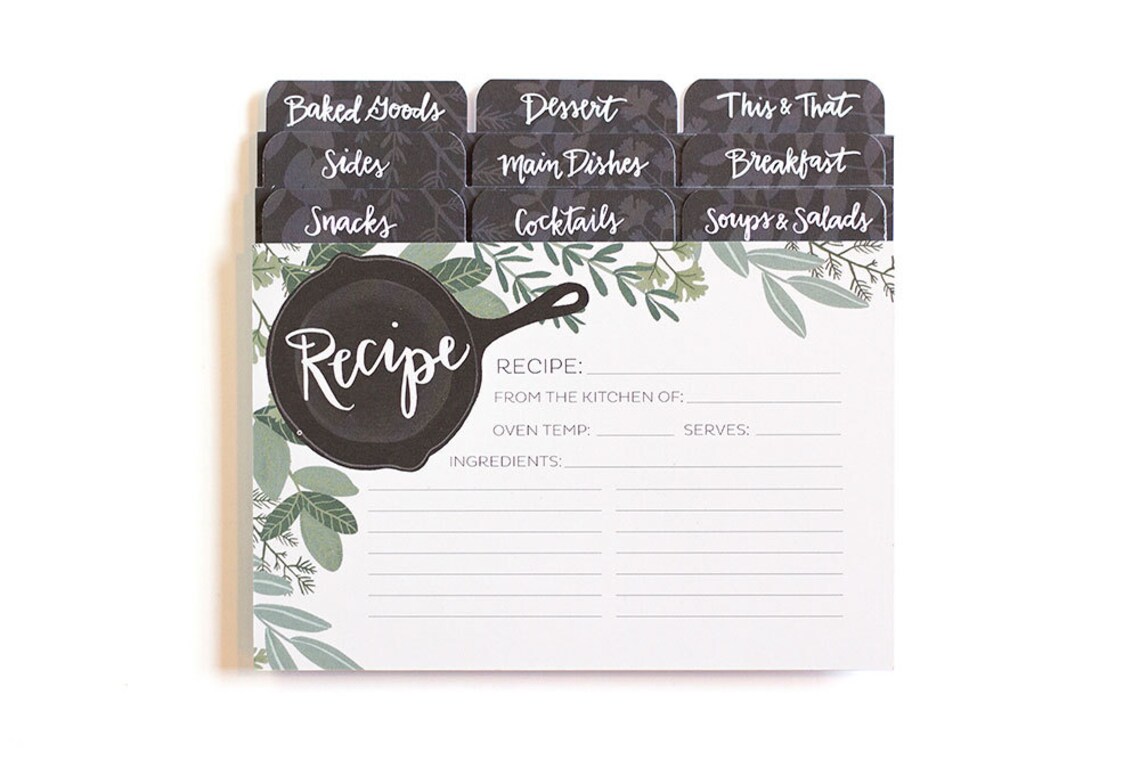 Baked Goods
Dessert
This & That
Sides
Main Dishes
Breakfast
Snacks
Cocktails
Soups & Salads
Recipe
RECIPE:
FROM THE KITCHEN OF:
OVEN TEMP: SERVES:
INGREDIENTS: